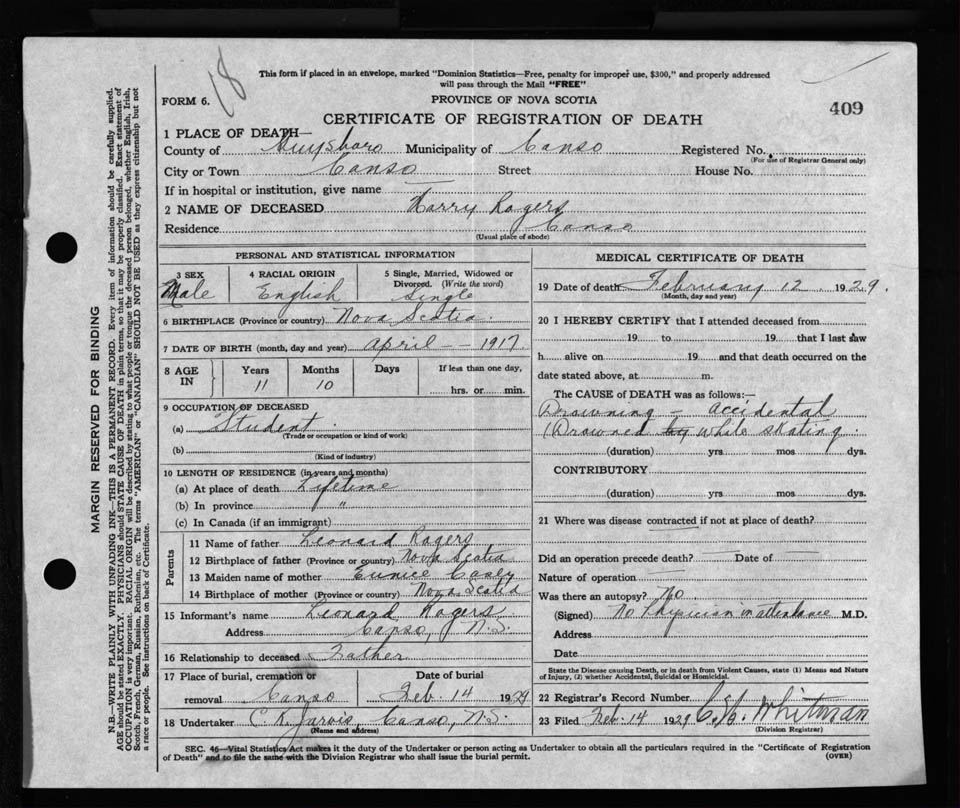 18
This form if placed in an envelope, marked "Dominion Statistics—Free, penalty for improper use, $300," and properly addressed
will pass through the Mail "FREE"
FORM 6.
PROVINCE OF NOVA SCOTIA
409
CERTIFICATE OF REGISTRATION OF DEATH
1 PLACE OF DEATH—
County of Guysboro Municipality of Canso Registered No.
(For use of Registrar General only)
City or Town Canso Street House No.
If in hospital or institution, give name
2 NAME OF DECEASED Harry Rogers
Residence Canso
(Usual place of abode)
MARGIN RESERVED FOR BINDING
N.B.—WRITE PLAINLY WITH UNFADING INK—THIS IS A PERMANENT RECORD. Every item of information should be carefully supplied.
AGE should be stated EXACTLY. PHYSICIANS should STATE CAUSE OF DEATH in plain terms, so that it may be properly classified. Exact statement of
OCCUPATION is very important. RACIAL ORIGIN will be described by stating to what people or tongue the deceased person belonged, whether English, Irish,
Scotch, French, German, Russian, Ruthenian, etc. The terms "AMERICAN" or "CANADIAN" SHOULD NOT BE USED as they express citizenship but not
a race or people. See instructions on back of Certificate.
PERSONAL AND STATISTICAL INFORMATION
3 SEX
Male
4 RACIAL ORIGIN
English
5 Single, Married, Widowed or
Divorced. (Write the word)
Single
6 BIRTHPLACE (Province or country) Nova Scotia
7 DATE OF BIRTH (month, day and year) April — — 1917
8 AGE
IN
Years
11
Months
10
Days
If less than one day,
hrs. or min.
9 OCCUPATION OF DECEASED
(a) Student
(Trade or occupation or kind of work)
(b)
(Kind of industry)
10 LENGTH OF RESIDENCE (in years and months)
(a) At place of death Lifetime
(b) In province "
(c) In Canada (if an immigrant)
Parents
11 Name of father Leonard Rogers
12 Birthplace of father (Province or country) Nova Scotia
13 Maiden name of mother Eunice
14 Birthplace of mother (Province or country) Nova Scotia
15 Informant's name Leonard Rogers
Address Canso, N.S.
16 Relationship to deceased Father
17 Place of burial, cremation or
removal Canso
Date of burial
Feb. 14 1929
18 Undertaker C. R. Jarvis, Canso, N.S.
(Name and address)
MEDICAL CERTIFICATE OF DEATH
19 Date of death February 12 1929.
(Month, day and year)
20 I HEREBY CERTIFY that I attended deceased from
19 to 19 that I last saw
h alive on 19 and that death occurred on the
date stated above, at m.
The CAUSE of DEATH was as follows:—
Drowning — accidental
(Drowned by while skating.
(duration) yrs mos dys.
CONTRIBUTORY
(duration) yrs mos dys.
21 Where was disease contracted if not at place of death?
Did an operation precede death? Date of
Nature of operation
Was there an autopsy? No
(Signed) No Physician in attendance M.D.
Address
Date
State the Disease causing Death, or in death from Violent Causes, state (1) Means and Nature
of Injury, (2) whether Accidental, Suicidal or Homicidal.
22 Registrar's Record Number
23 Filed Feb. 14 1929 Whitman
(Division Registrar)
SEC. 46—Vital Statistics Act makes it the duty of the Undertaker or person acting as Undertaker to obtain all the particulars required in the "Certificate of Registration
of Death" and to file the same with the Division Registrar who shall issue the burial permit.
(OVER)